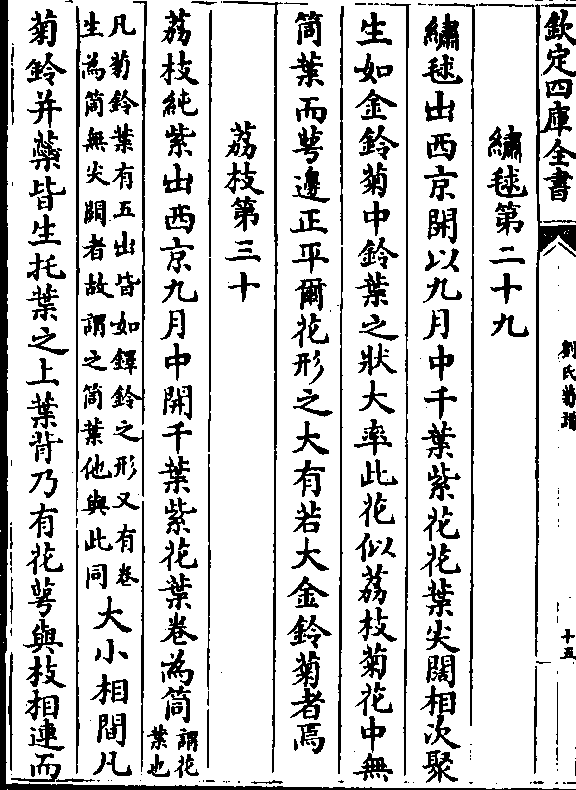 欽定四庫全書
劉氏菊譜
十五
繡毬第二十九
繡毬出西京開以九月中千葉紫花花葉尖闊相次聚
生如金鈴菊中鈴葉之狀大率此花似荔枝菊花中無
筒葉而萼邊正平爾花形之大有若大金鈴菊者焉
荔枝第三十
荔枝純紫出西京九月中開千葉紫花葉卷為筒謂花葉也
凡菊鈴葉有五出皆如鐸鈴之形又有卷生為筒無尖闊者故謂之筒葉他與此同大小相間凡
菊鈴并蘂皆生托葉之上葉背乃有花萼與枝相連而